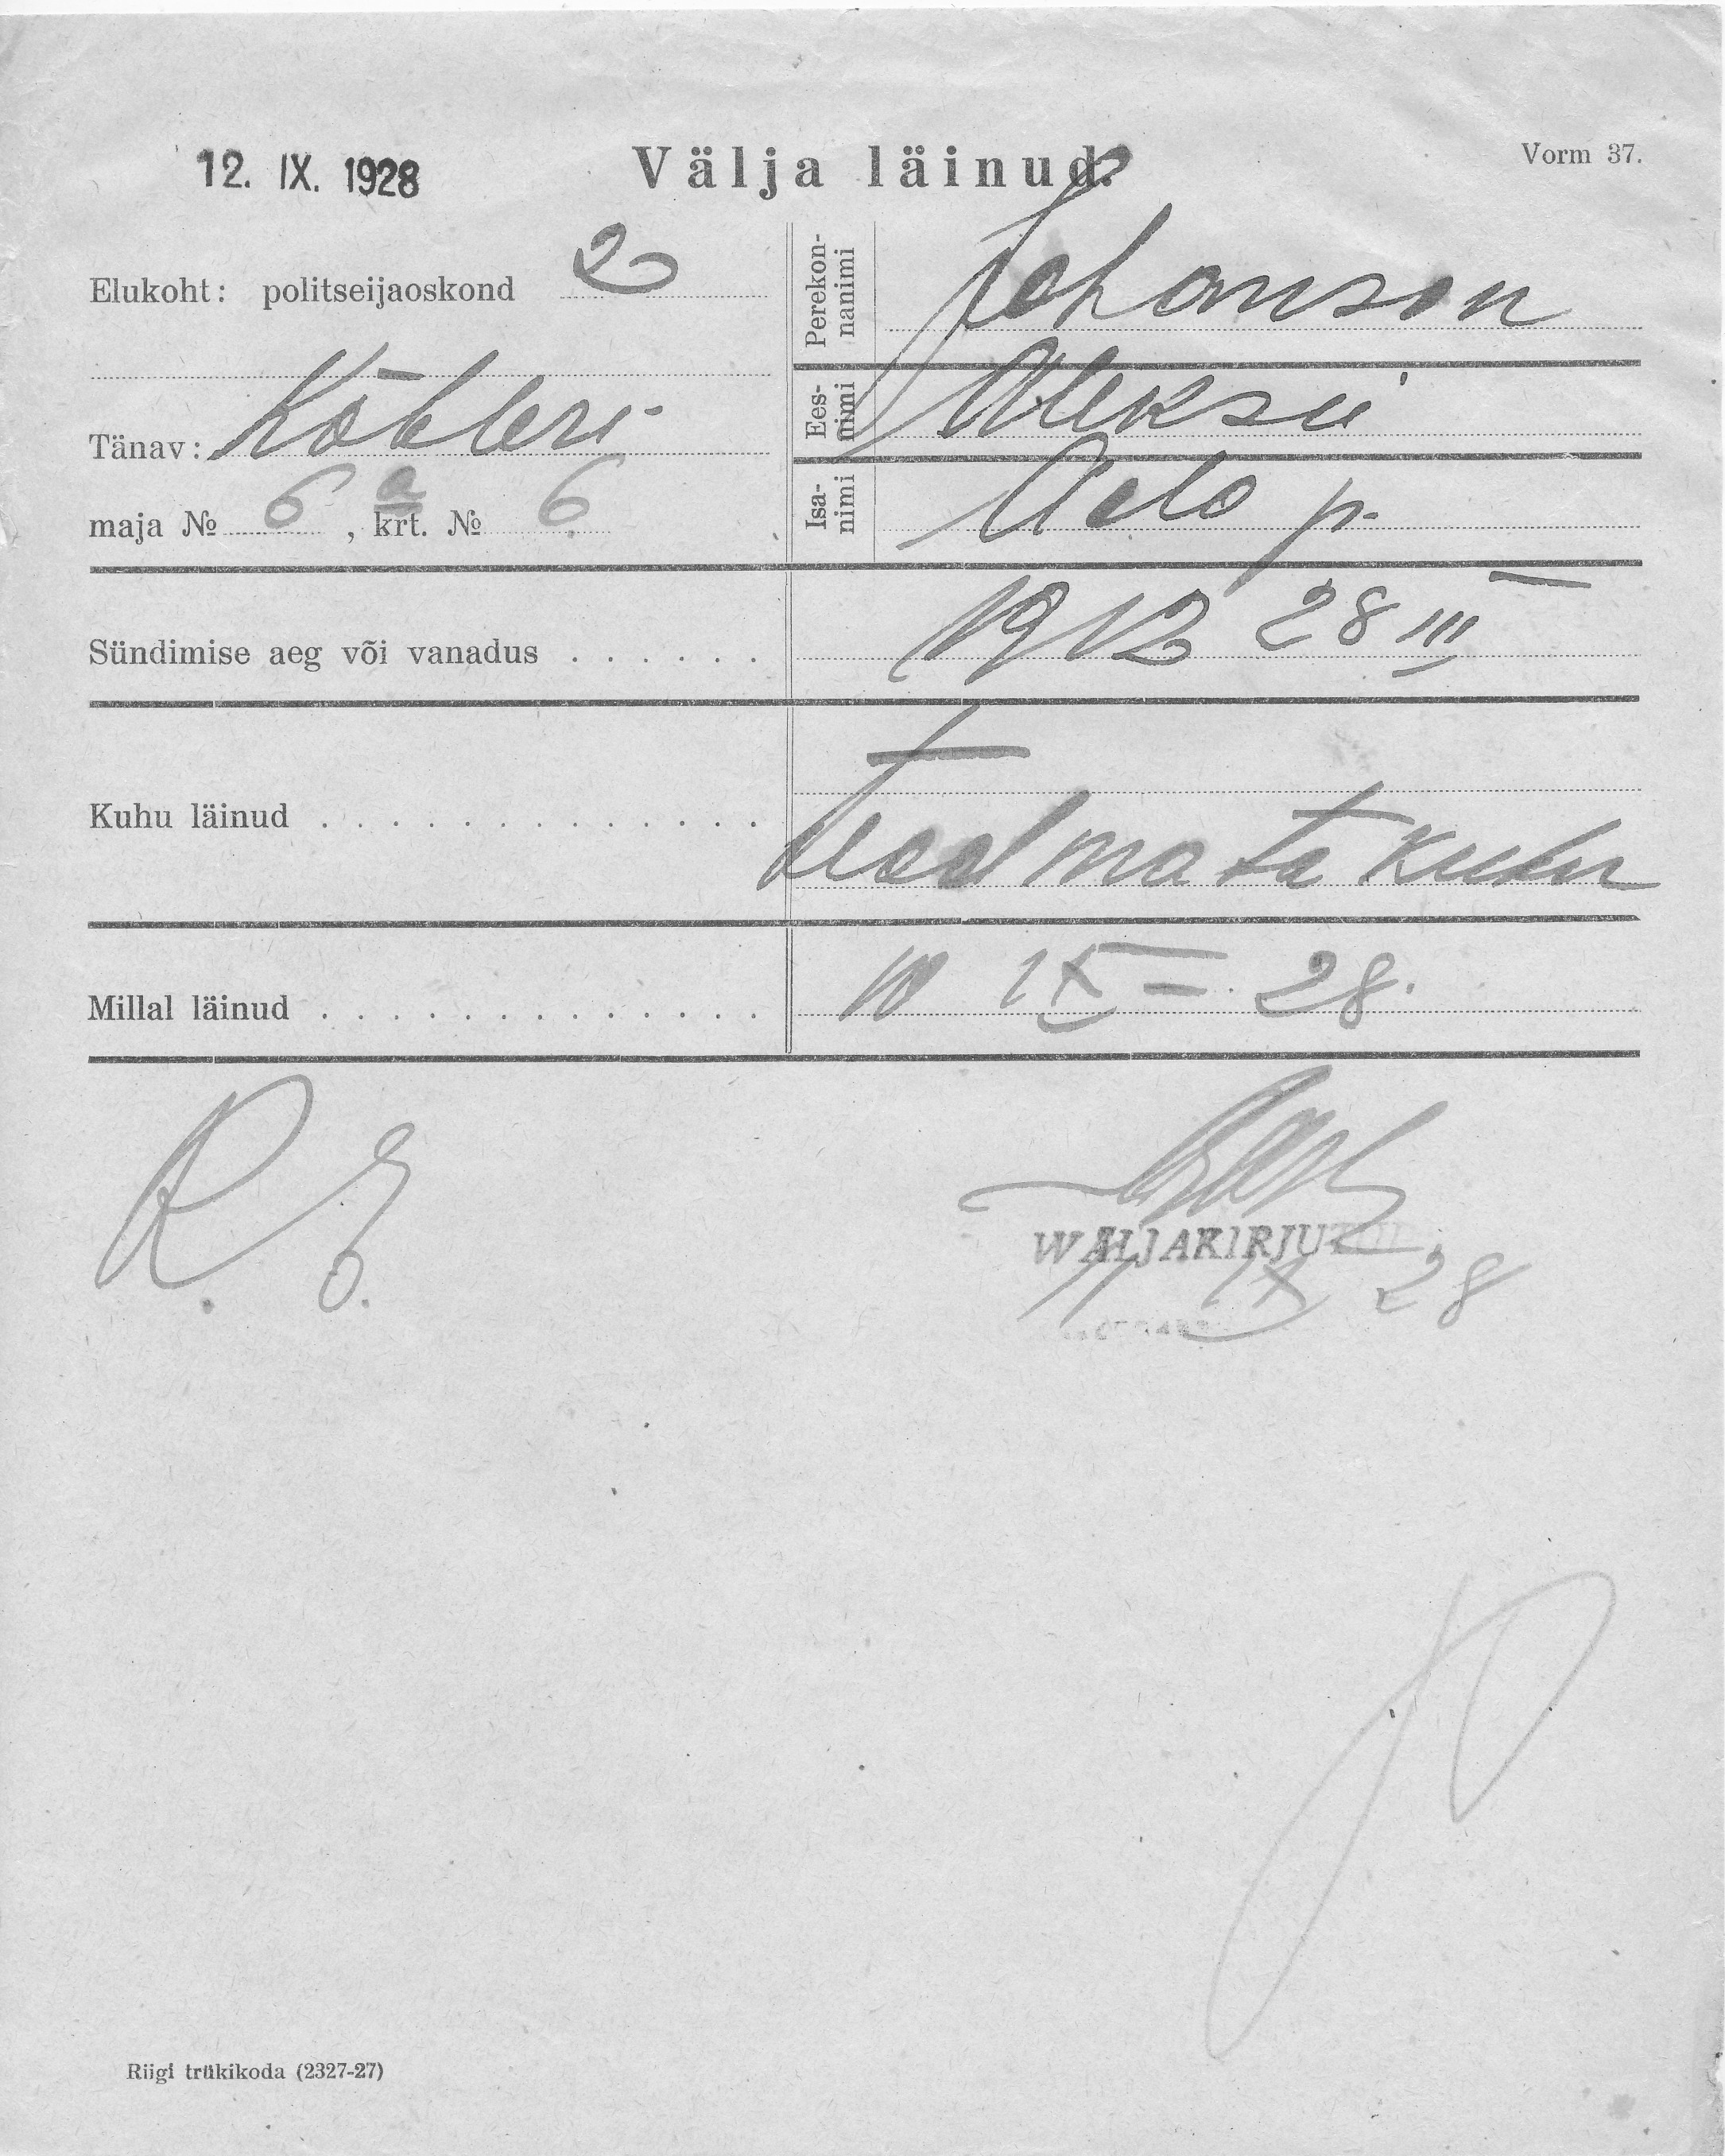 12. IX. 1928
Välja läinud.
Vorm 37.
Elukoht: politseijaoskond 2
Tänav: Köhleri
maja № 6 a, krt. № 6
Perekon-
nanimi
Johanson
Ees-
nimi
Aleksii
Isa-
nimi
Ado p.
Sündimise aeg või vanadus . . . . . . 1912 28 III
Kuhu läinud . . . . . . . . . . . . . . Teadmata kuhu
Millal läinud . . . . . . . . . . . . . . 10 IX – 28.
WÄLJAKIRJUTATUD
11 IX 28
Riigi trükikoda (2327-27)